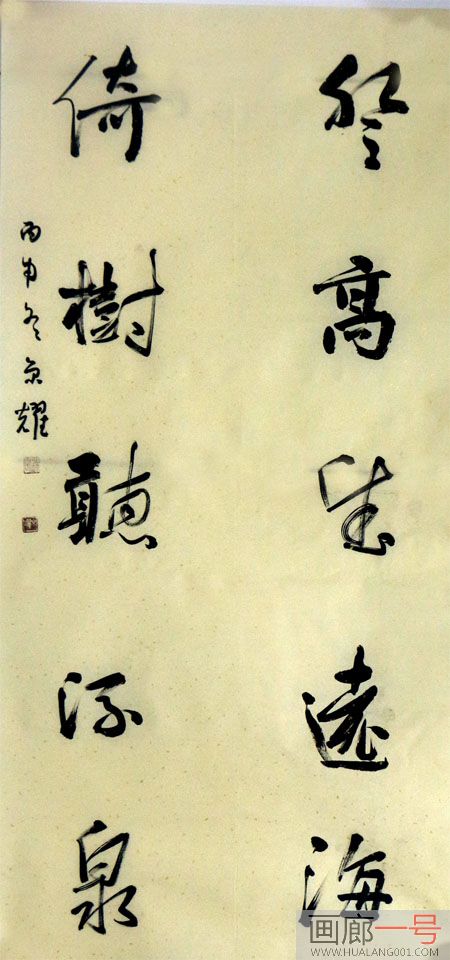 登高望遠海
倚樹聽流泉
丙申冬京耀
画廊一号
WWW.HUALANG001.COM